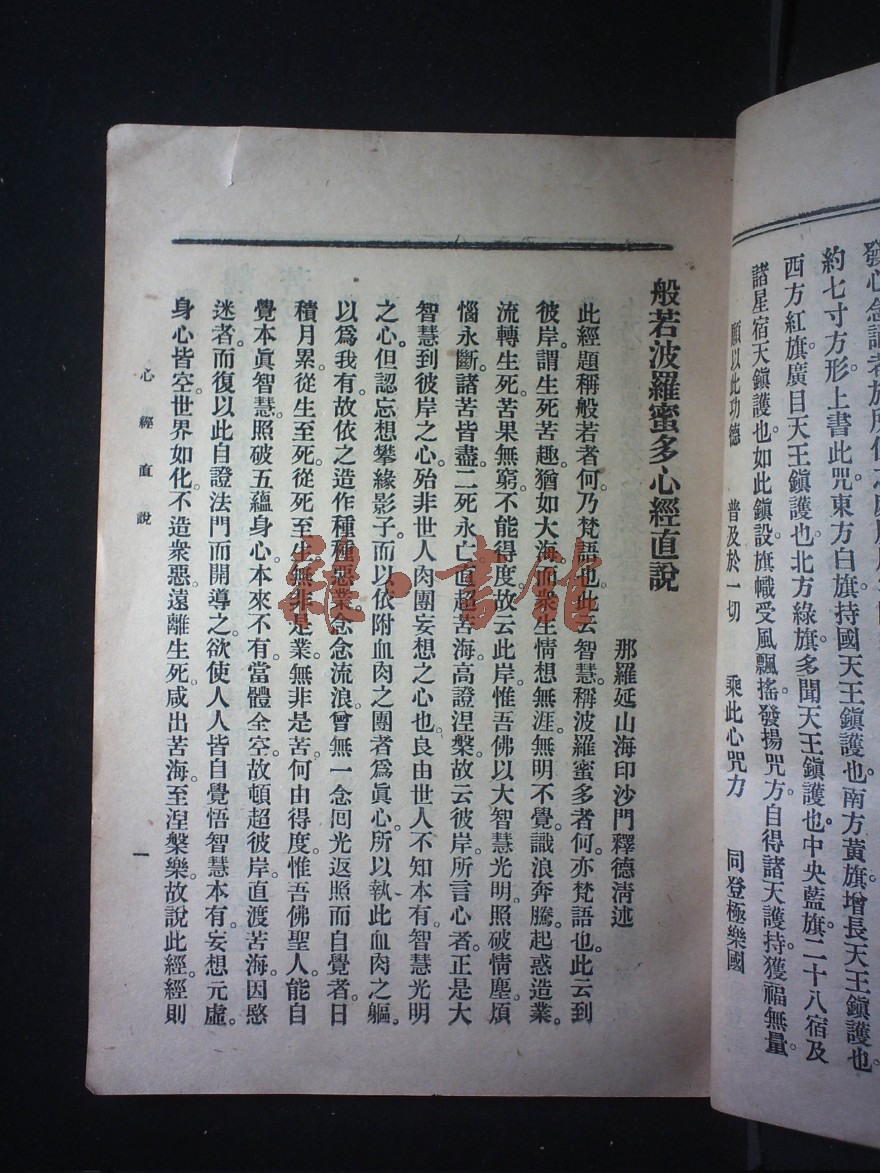 發心念誦者於所住之
約七寸方形上書此咒東方白旗持國天王鎭護也。南方黃旗增長天王鎭護也。
西方紅旗廣目天王鎭護也。北方綠旗多聞天王鎭護也。中央藍旗二十八宿及
諸星宿天鎭護也。如此鎭設旗幟受風飄搖。發揚咒方自得諸天護持。獲福無量。
願以此功德　普及於一切　乘此心咒力　同登極樂國
般若波羅蜜多心經直說
那羅延山海印沙門釋德淸述
此經題稱般若者何。乃梵語也。此云智慧。稱波羅蜜多者何。亦梵語也。此云到
彼岸。謂生死苦趣。猶如大海。而衆生情想無涯。無明不覺。識浪奔騰。起惑造業。
流轉生死。苦果無窮。不能得度。故云此岸。惟吾佛以大智慧光明。照破情塵。煩
惱永斷。諸苦皆盡。二死永亡。直超苦海。高證涅槃。故云彼岸。所言心者。正是大
智慧到彼岸之心。殆非世人肉團妄想之心也。良由世人不知本有。智慧光明
之心。但認忘想攀緣影子。而以依附血肉之團者爲眞心。所以執此血肉之軀。
以爲我有。故依之造作種種惡業。念念流浪。曾無一念回光返照而自覺者。日
積月累。從生至死。從死至生。無非是業。無非是苦。何由得度。惟吾佛聖人。能自
覺本眞智慧。照破五蘊身心。本來不有。當體全空。故頓超彼岸。直渡苦海。因愍
迷者。而復以此自證法門而開導之。欲使人人皆自覺悟智慧本有。妄想元虛。
身心皆空。世界如化。不造衆惡。遠離生死。咸出苦海。至涅槃樂。故說此經。經則
心經直說
一
雜·書館